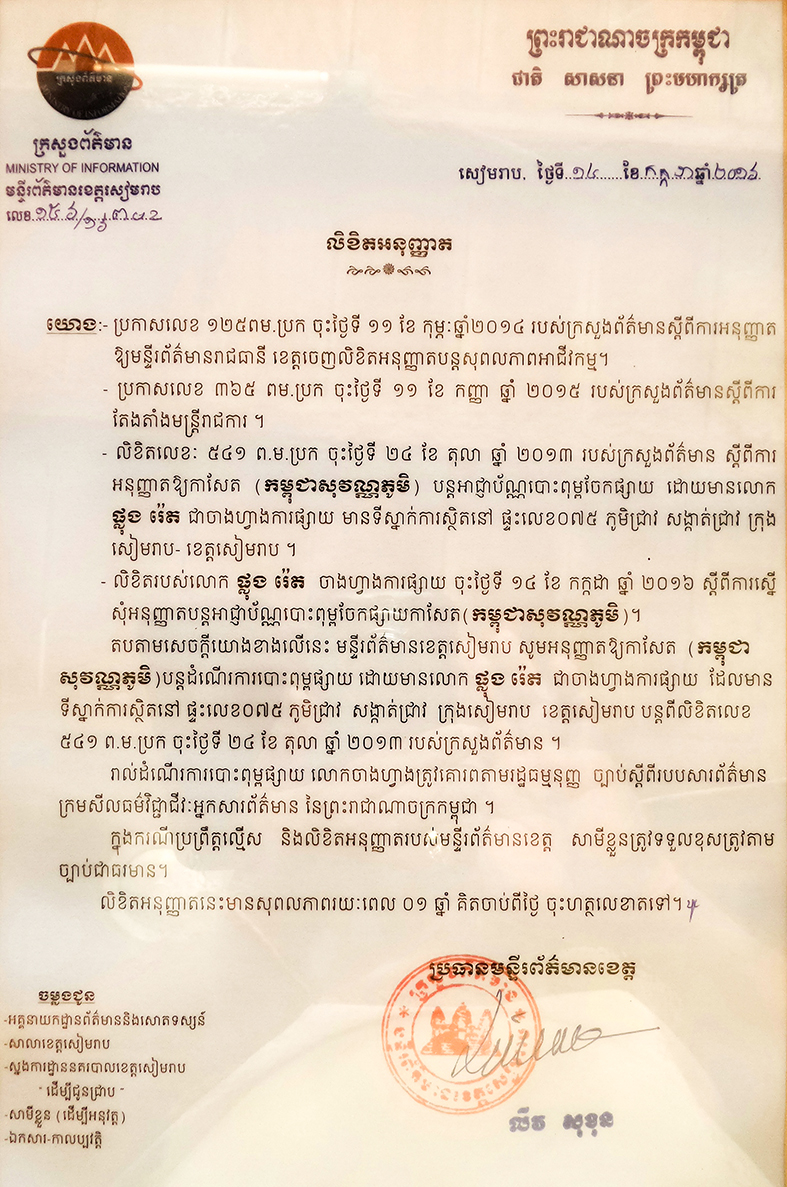 ព្រះរាជាណាចក្រកម្ពុជា
ជាតិ សាសនា ព្រះមហាក្សត្រ
ក្រសួងព័ត៌មាន
ក្រសួងព័ត៌មាន
MINISTRY OF INFORMATION
មន្ទីរព័ត៌មានខេត្តសៀមរាប
លេខ.១៥៦/១៦
សៀមរាប, ថ្ងៃទី.១៤......ខែ.កក្កដាឆ្នាំ.២០១៦.
លិខិតអនុញ្ញាត
យោង:- ប្រកាសលេខ ១២៥ពម.ប្រក ចុះថ្ងៃទី ១១ ខែ កុម្ភៈឆ្នាំ២០១៤ របស់ក្រសួងព័ត៌មានស្តីពីការអនុញ្ញាត
ឱ្យមន្ទីរព័ត៌មានរាជធានី ខេត្តចេញលិខិតអនុញ្ញាតបន្តសុពលភាពអាជីវកម្ម។
- ប្រកាសលេខ ៣៦៥ ពម.ប្រក ចុះថ្ងៃទី ១១ ខែ កញ្ញា ឆ្នាំ ២០១៥ របស់ក្រសួងព័ត៌មានស្តីពីការ
តែងតាំងមន្ត្រីរាជការ ។
- លិខិតលេខៈ ៥៤១ ព.ម.ប្រក ចុះថ្ងៃទី ២៤ ខែ តុលា ឆ្នាំ ២០១៣ របស់ក្រសួងព័ត៌មាន ស្តីពីការ
អនុញ្ញាតឱ្យកាសែត (កម្ពុជាសុវណ្ណភូមិ) បន្តអាជ្ញាប័ណ្ណបោះពុម្ពចែកផ្សាយ ដោយមានលោក
ផ្លុង រ៉េត ជាចាងហ្វាងការផ្សាយ មានទីស្នាក់ការស្ថិតនៅ ផ្ទះលេខ០៧៥ ភូមិជ្រាវ សង្កាត់ជ្រាវ ក្រុង
សៀមរាប- ខេត្តសៀមរាប ។
- លិខិតរបស់លោក ផ្លុង រ៉េត ចាងហ្វាងការផ្សាយ ចុះថ្ងៃទី ១៤ ខែ កក្កដា ឆ្នាំ ២០១៦ ស្តីពីការស្នើ
សុំអនុញ្ញាតបន្តអាជ្ញាប័ណ្ណបោះពុម្ពចែកផ្សាយកាសែត(កម្ពុជាសុវណ្ណភូមិ)។
តបតាមសេចក្តីយោងខាងលើនេះ មន្ទីរព័ត៌មានខេត្តសៀមរាប សូមអនុញ្ញាតឱ្យកាសែត (កម្ពុជា
សុវណ្ណភូមិ)បន្តដំណើរការបោះពុម្ពផ្សាយ ដោយមានលោក ផ្លុង រ៉េត ជាចាងហ្វាងការផ្សាយ ដែលមាន
ទីស្នាក់ការស្ថិតនៅ ផ្ទះលេខ០៧៥ ភូមិជ្រាវ សង្កាត់ជ្រាវ ក្រុងសៀមរាប ខេត្តសៀមរាប បន្តពីលិខិតលេខ
៥៤១ ព.ម.ប្រក ចុះថ្ងៃទី ២៤ ខែ តុលា ឆ្នាំ ២០១៣ របស់ក្រសួងព័ត៌មាន ។
រាល់ដំណើរការបោះពុម្ពផ្សាយ លោកចាងហ្វាងត្រូវគោរពតាមរដ្ឋធម្មនុញ្ញ ច្បាប់ស្តីពីរបបសារព័ត៌មាន
ក្រមសីលធម៌វិជ្ជាជីវៈអ្នកសារព័ត៌មាន នៃព្រះរាជាណាចក្រកម្ពុជា ។
ក្នុងករណីប្រព្រឹត្តល្មើស និងលិខិតអនុញ្ញាតរបស់មន្ទីរព័ត៌មានខេត្ត សាមីខ្លួនត្រូវទទួលខុសត្រូវតាម
ច្បាប់ជាធរមាន។
លិខិតអនុញ្ញាតនេះមានសុពលភាពរយៈពេល ០១ ឆ្នាំ គិតចាប់ពីថ្ងៃ ចុះហត្ថលេខាតទៅ។
ប្រធានមន្ទីរព័ត៌មានខេត្ត
លីវ សុខុន
ចម្លងជូន
-អគ្គនាយកដ្ឋានព័ត៌មាននិងសោតទស្សន៍
-សាលាខេត្តសៀមរាប
-ស្នងការដ្ឋាននគរបាលខេត្តសៀមរាប
" ដើម្បីជូនជ្រាប "
-សាមីខ្លួន (ដើម្បីអនុវត្ត)
-ឯកសារ-កាលប្បវត្តិ